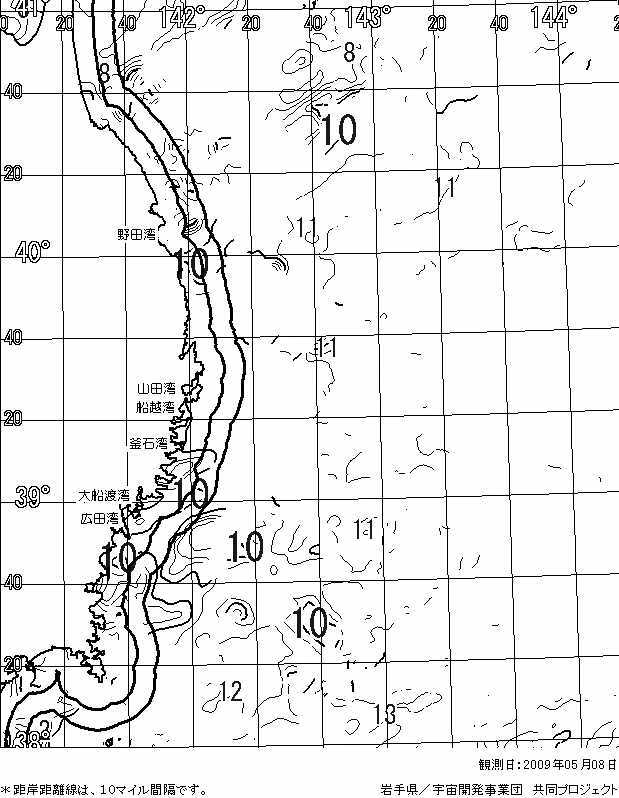 41
20 142° 40 20 143° 40 20 144° 40
8
8
40
10
20
11
11
野田湾
40°
10
40
11
山田湾
船越湾
20
釜石湾
39°
大船渡湾
10
広田湾
11
10
10
40
10
20
12
13
2
38°
観測日:2009年05月08日
*距岸距離線は、10マイル間隔です。 岩手県/宇宙開発事業団 共同プロジェクト